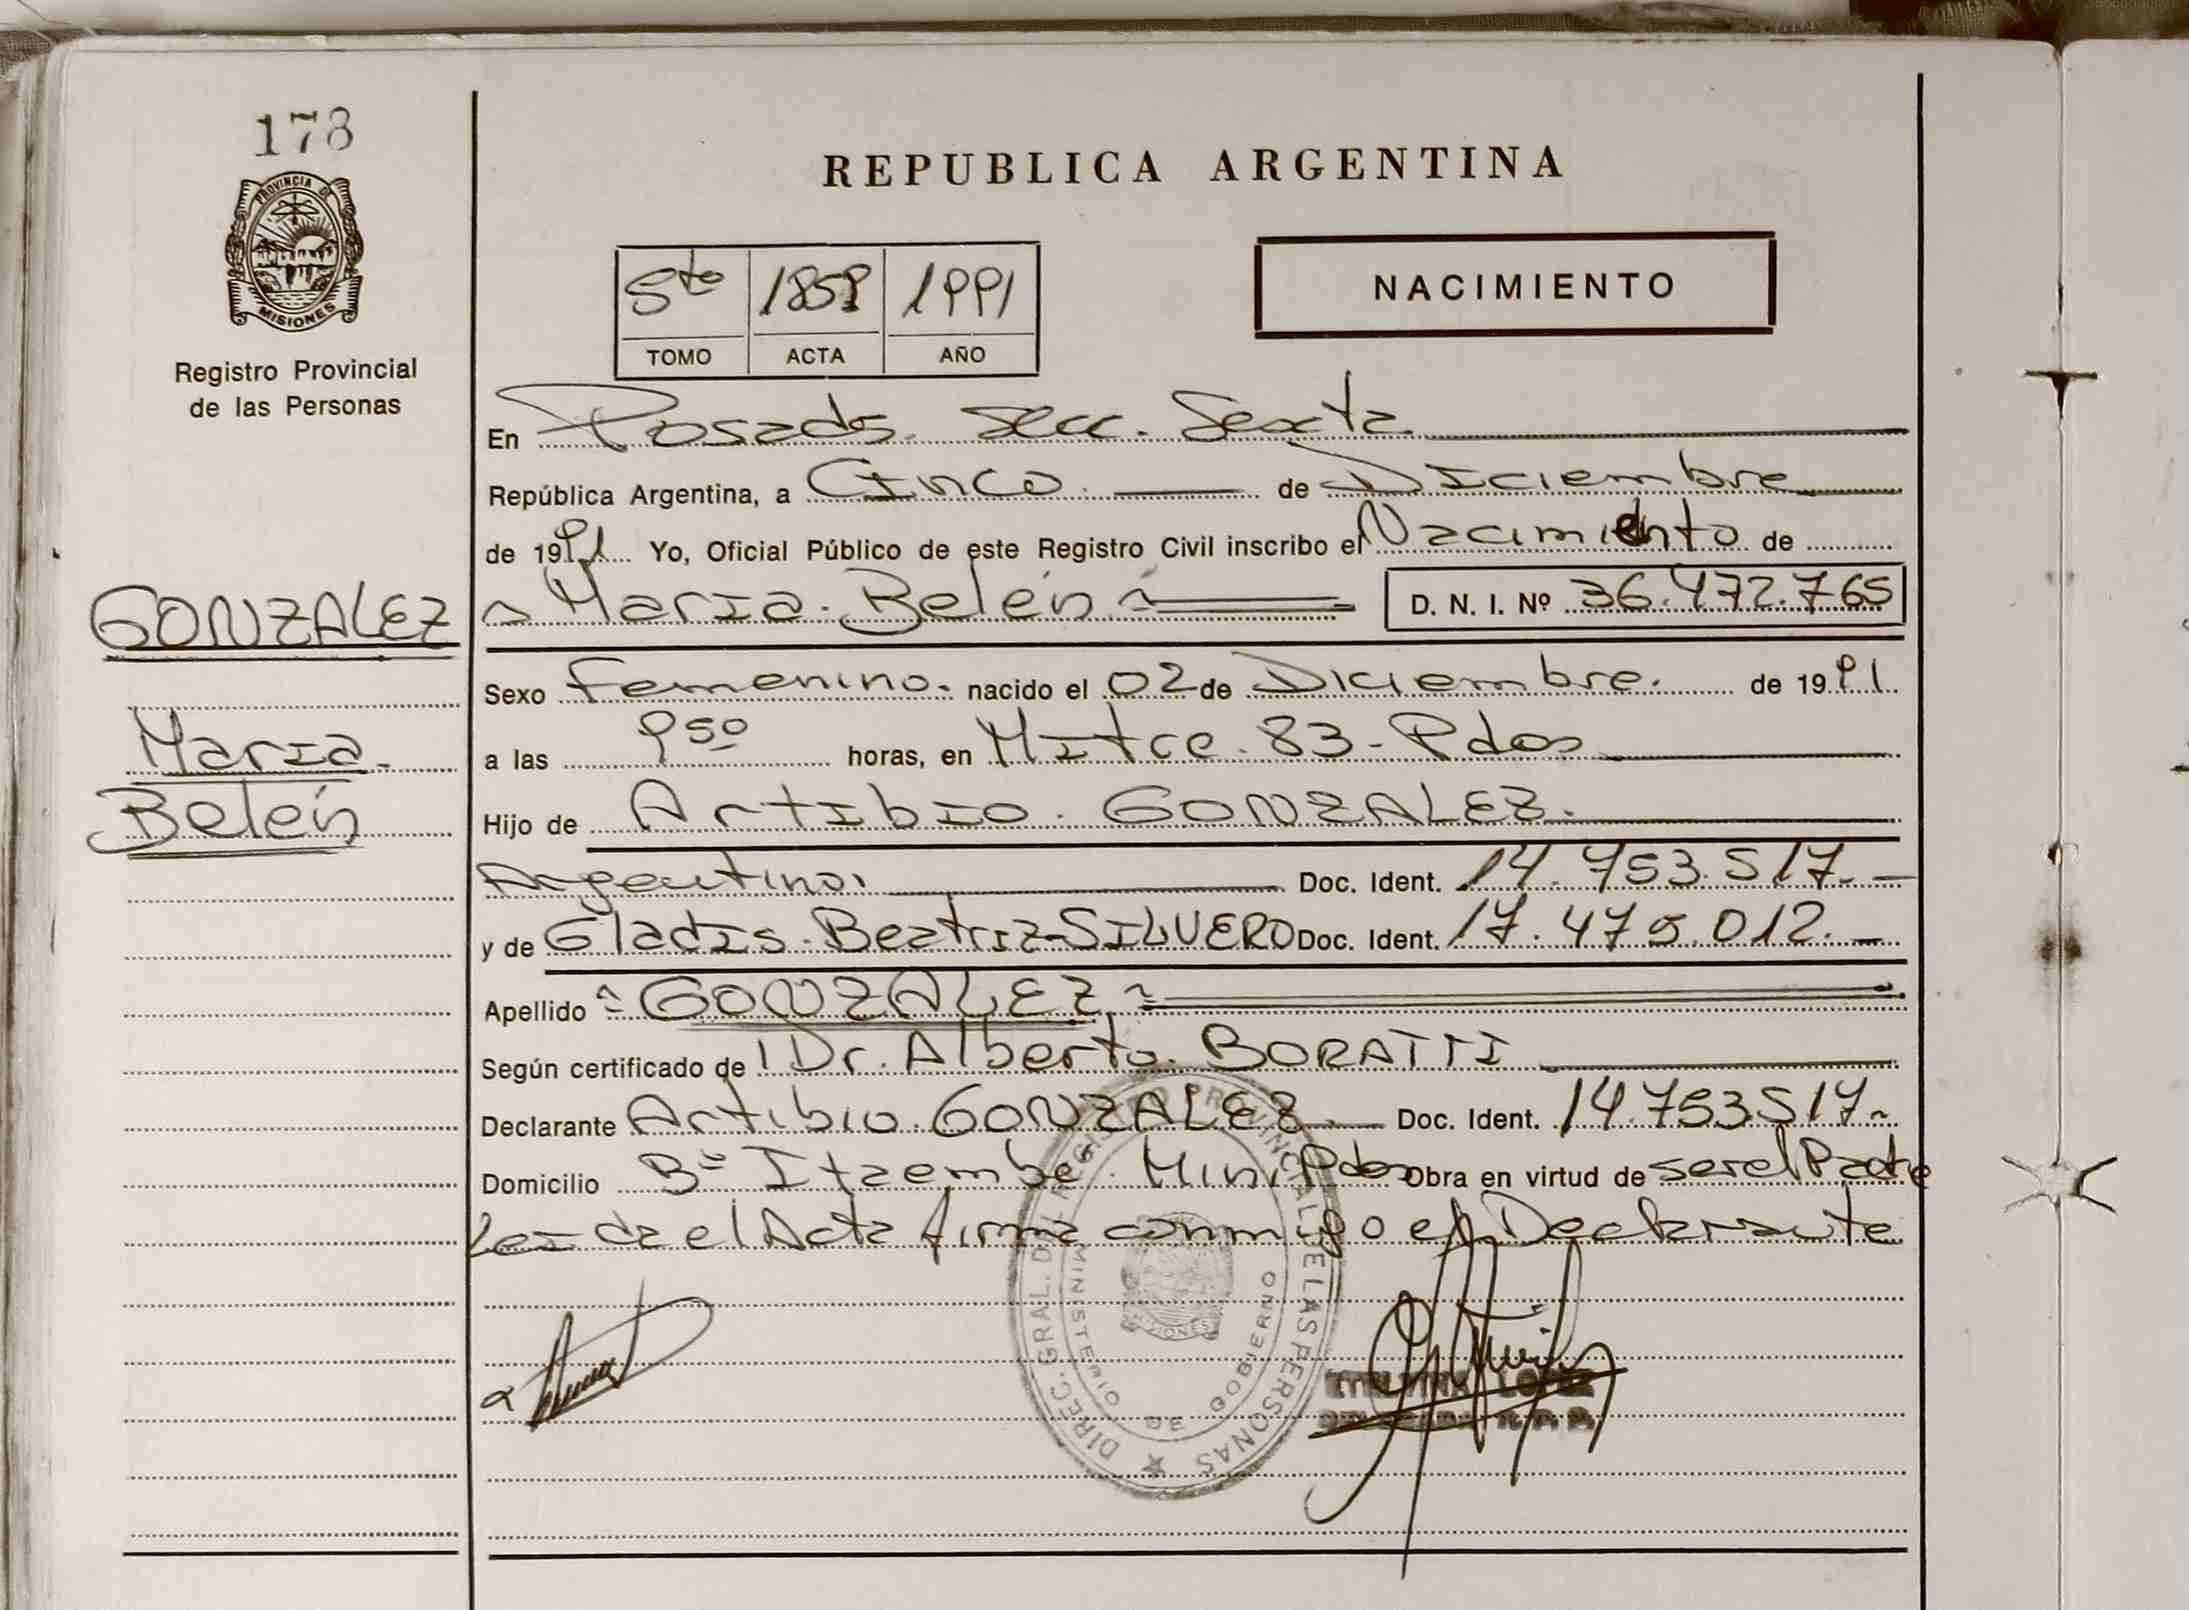 178
PROVINCIA DE
MISIONES
Registro Provincial
de las Personas
GONZALEZ
Maria
Belén
REPUBLICA ARGENTINA
5to 1859 1991
TOMO ACTA AÑO
NACIMIENTO
En Posadas. Secc. Sexta
República Argentina, a Cinco. de Diciembre
de 1991 Yo, Oficial Público de este Registro Civil inscribo el Nacimiento de
Maria Belén D. N. I. Nº 36.472.765
Sexo Femenino. nacido el 02 de Diciembre. de 1991.
a las 9⁵⁰ horas, en Mitre. 83 - Pdas
Hijo de Artibio. GONZALEZ.
Argentino. Doc. Ident. 14.753.517.-
y de Gladis. Beatriz SILVERO Doc. Ident. 17.475.012.-
Apellido GONZALEZ
Según certificado de Dr. Alberto. BORATTI
Declarante Artibio. GONZALEZ Doc. Ident. 14.753.517
Domicilio Bº Itaembé Miní Pdas Obra en virtud de ser el Padre
Leida el Acta firma conmigo el Declarante
DIREC. GRAL. DEL REGISTRO PROVINCIAL DE LAS PERSONAS
MINISTERIO DE GOBIERNO
MISIONES
LOPEZ